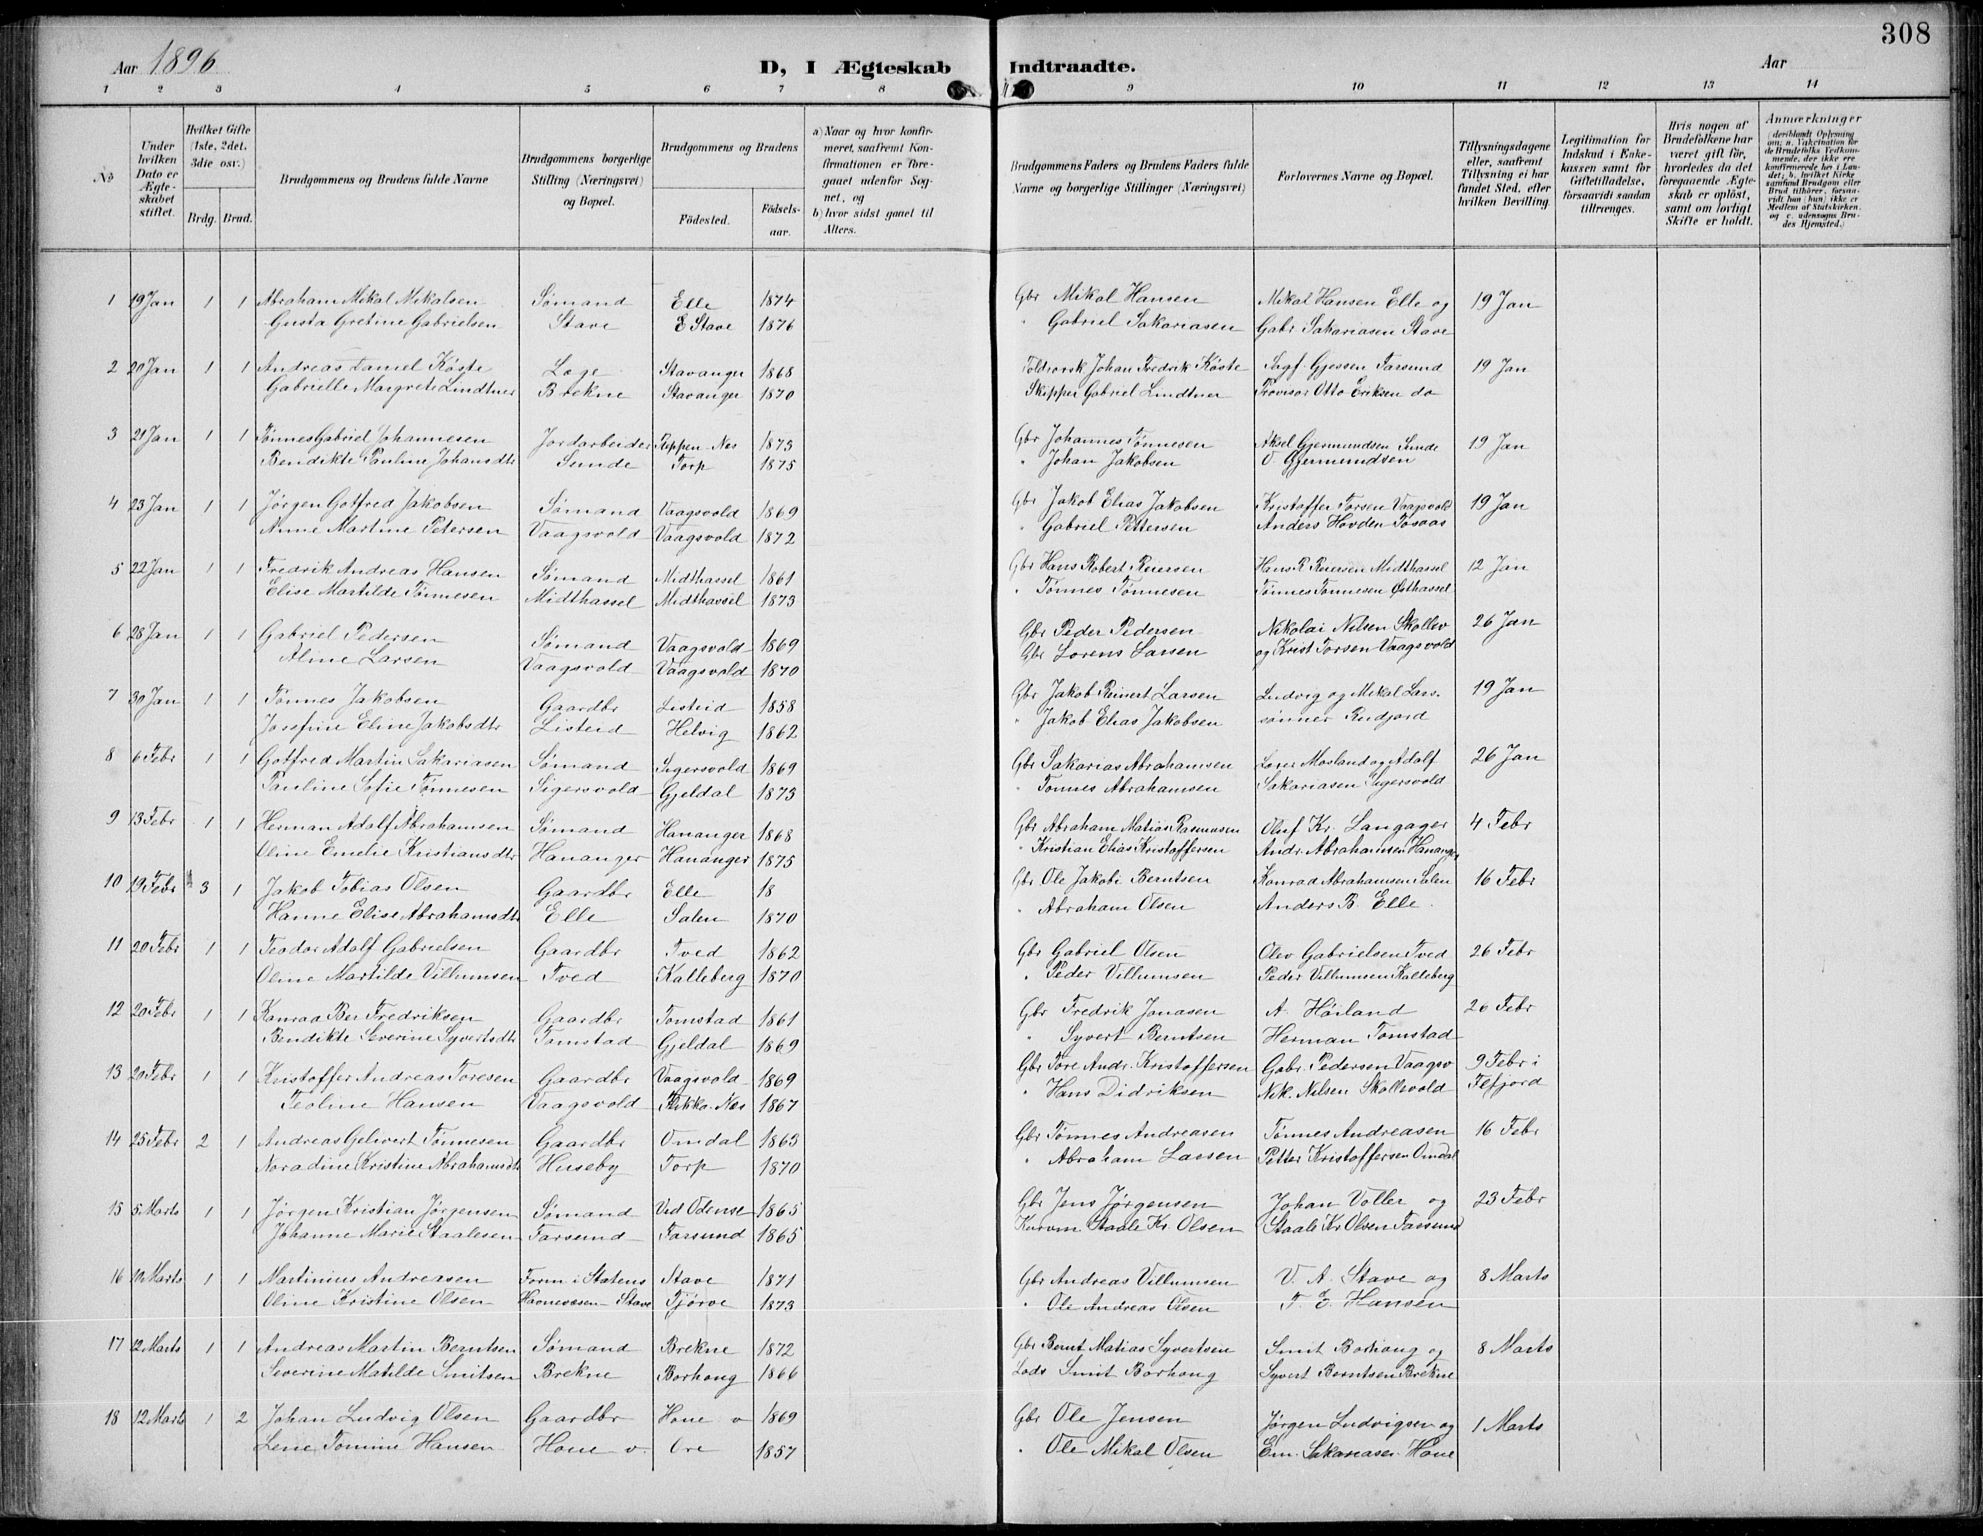 308
Aar 1896
D, I Ægteskab Indtraadte.
Aar
1 2 3 4 5 6 7 8 9 10 11 12 13 14
No
Under hvilken Dato er Ægteskabet stiftet.
Hvilket Gifte (1ste, 2det, 3die osv.)
Brdg. Brud.
Brudgommens og Brudens fulde Navne
Brudgommens borgerlige Stilling (Næringsvei) og Bopæl.
Brudgommens og Brudens
Fødested. Fødselsaar.
a) Naar og hvor konfirmeret, saafremt Konfirmationen er foregaaet udenfor Sognet, og
b) hvor sidst gaaet til Alters.
Brudgommens Faders og Brudens Faders fulde Navne og borgerlige Stillinger (Næringsvei)
Forlovernes Navne og Bopæl.
Tillysningsdagene eller, saafremt Tillysning ei har fundet Sted, efter hvilken Bevilling
Legitimation for Indskud i Enkekassen samt for Giftetilladelse, forsaavidt saadan tiltrænges.
Hvis nogen af Brudefolkene har været gift før, hvorledes da det foregaaende Ægteskab er opløst, samt om lovligt Skifte er holdt.
Anmærkninger (deriblandt Oplysning om: a. Vakcination for de Brudefolks Vedkommende, der ikke ere konfirmerede her i Landet; b. hvilket Kirkesamfund Brudgom eller Brud tilhører, forsavidt han (hun) ikke er Medlem af Statskirken, og c. udensogns Brudes Hjemsted.)
1 19 Jan 1 1 Abraham Mikal Mikalsen Sømand Elle 1874 Gbr Mikal Hansen Mikal Hansen Elle og 19 Jan
Gusta Gretine Gabrielsen Stave E Stave 1876 " Gabriel Sakariasen Gabr Sakariasen Stave
2 20 Jan 1 1 Andreas Daniel Køste Læge Stavanger 1868 Johan Fredrik Køste Sagf. Gjessen Farsund 19 Jan
Gabrielle Margrete Lindtner Brekne Stavanger 1870 Skipper Gabriel Lindtner Provisor Otto Eriksen do
3 21 Jan 1 1 Tønnes Gabriel Johannesen Jordarbeider Nes 1873 Gbr Johannes Tønnesen Aksel Gjermundsen Sunde 19 Jan
Bendikte Pauline Johansdtr Sunde Torp 1875 " Johan Jakobsen O Gjermundsen
4 23 Jan 1 1 Jørgen Gotfred Jakobsen Sømand Vaagsvold 1869 Gbr Jakob Elias Jakobsen Kristoffer Torsen Vaagsvold 19 Jan
Anne Martine Petersen Vaagsvold Vaagsvold 1872 " Gabriel Pettersen Anders Hovden Tosaas
5 22 Jan 1 1 Fredrik Andreas Hansen Sømand Midthassel 1861 Gbr Hans Robert Reiersen Hans R Reiersen Midthassel 12 Jan
Elise Martilde Tønnesen Midthassel Midthassel 1873 " Tønnes Tønnesen Tønnes Tønnesen Østhassel
6 28 Jan 1 1 Gabriel Pedersen Sømand Vaagsvold 1869 Gbr Peder Pedersen Nikolai Nilsen Skollev 26 Jan
Aline Larsen Vaagsvold Vaagsvold 1870 Gbr Lorens Larsen og Krist Torsen Vaagsvold
7 30 Jan 1 1 Tønnes Jakobsen Gaardbr Listeid 1858 Gbr Jakob Reinert Larsen Ludvig og Mikal Lars- 19 Jan
Josefine Eline Jakobsdtr Listeid Helvig 1862 " Jakob Elias Jakobsen sønner Rudjord
8 6 Febr 1 1 Gotfred Martin Sakariasen Sømand Sigersvold 1869 Gbr Sakarias Abrahamsen Mosland og Adolf 26 Jan
Pauline Sofie Tønnesen Sigersvold Gjeldal 1873 " Tønnes Abrahamsen Sakariasen Sigersvold
9 13 Febr 1 1 Herman Adolf Abrahamsen Sømand Hananger 1868 Gbr Abraham Matias Rasmusen Oluf Kr. Langager 4 Febr
Oline Emelie Kristiansdtr Hananger Hananger 1875 " Kristian Elias Kristoffersen Andr. Abrahamsen Hananger
10 19 Febr 3 1 Jakob Tobias Olsen Gaardbr Elle 18 Gbr Ole Jakobi Berntsen Konrad Abrahamsen Salen 16 Febr
Hanne Elise Abrahamsdtr Elle Salen 1870 " Abraham Olsen Anders B. Elle.
11 20 Febr 1 1 Teodor Adolf Gabrielsen Gaardbr Tved 1862 Gbr Gabriel Olsen Olev Gabrielsen Tved 26 Febr
Oline Martilde Villumsen Tved Kalleberg 1870 " Peder Villumsen Peder Villumsen Kalleberg
12 20 Febr 1 1 Konrad Ber Fredriksen Gaardbr Tomstad 1861 Gbr Fredrik Jonasen A. Høiland 26 Febr
Bendikte Severine Syvertsdtr Tomstad Gjeldal 1869 " Syvert Berntsen Herman Tomstad
13 20 Febr 1 1 Kristoffer Andreas Toresen Gaardbr Vaagsvold 1869 Gbr Tore Andr. Kristoffersen Gabr. Pedersen Vaagsv 9 Febr i
Teoline Hansen Vaagsvold Nes 1867 " Hans Didriksen Nik. Nilsen Skollevold Fefjord
14 25 Febr 2 1 Andreas Gelivert Tønnesen Gaardbr Omdal 1863 Gbr Tønnes Andreasen Tønnes Andreasen 16 Febr
Noradine Kristine Abrahamsdtr Huseby Torp 1870 " Abraham Larsen Petter Kristoffersen Omdal
15 5 Marts 1 1 Jørgen Kristian Jørgensen Sømand Ved Odense 1865 Gbr Jens Jørgensen Johan Voller og 23 Febr
Johanne Marie Staalesen Farsund Farsund 1865 Staale Kr. Olsen Staale Kr Olsen Farsund
16 10 Marts 1 1 Martinius Andreasen Form i Statens Stave 1871 Gbr Andreas Villumsen V. A. Stave og 8 Marts
Oline Kristine Olsen Havnevæsen Stave Tjørve 1873 " Ole Andreas Olsen T. E. Hansen
17 12 Marts 1 1 Andreas Martin Berntsen Sømand Brekne 1872 Gbr Bernt Matias Syvertsen Smit Borhaug og 8 Marts
Severine Matilde Smitsen Brekne Borhaug 1866 Lods Smit Borhaug Syvert Berntsen Brekne
18 12 Marts 1 2 Johan Ludvig Olsen Gaardbr Hone v 1869 Gbr Ole Jensen Jørgen Ludvigsen og 1 Marts
Lene Tomine Hansen Hone v. Ore 1857 " Ole Mikal Olsen Em. Sakariasen Hone